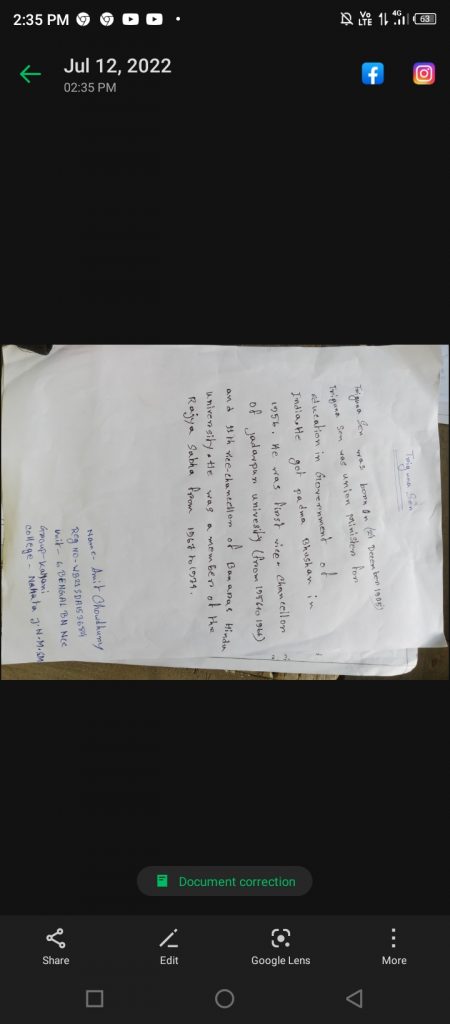 2:35 PM
Vo LTE 4G 63
Jul 12, 2022
02:35 PM
Triguna Sen
Triguna Sen was born in (24 December 1905)
Triguna Sen was union Minister for
education in Government of
India. He got padma Bhushan in
1956. He was first vice-chancellor
of jadavpur univesity (from 1956 to 1966)
and 9th vice-chancellor of Banaras Hindu
university. He was a member of the
Rajya Sabha from 1967 to 1974.
Name- Amit Choudhury
Reg No-
unit- 6 BENGAL BN NCC
Group- Kalyani
College - Nahata J.N.M.S.M
Document correction
Share Edit Google Lens More